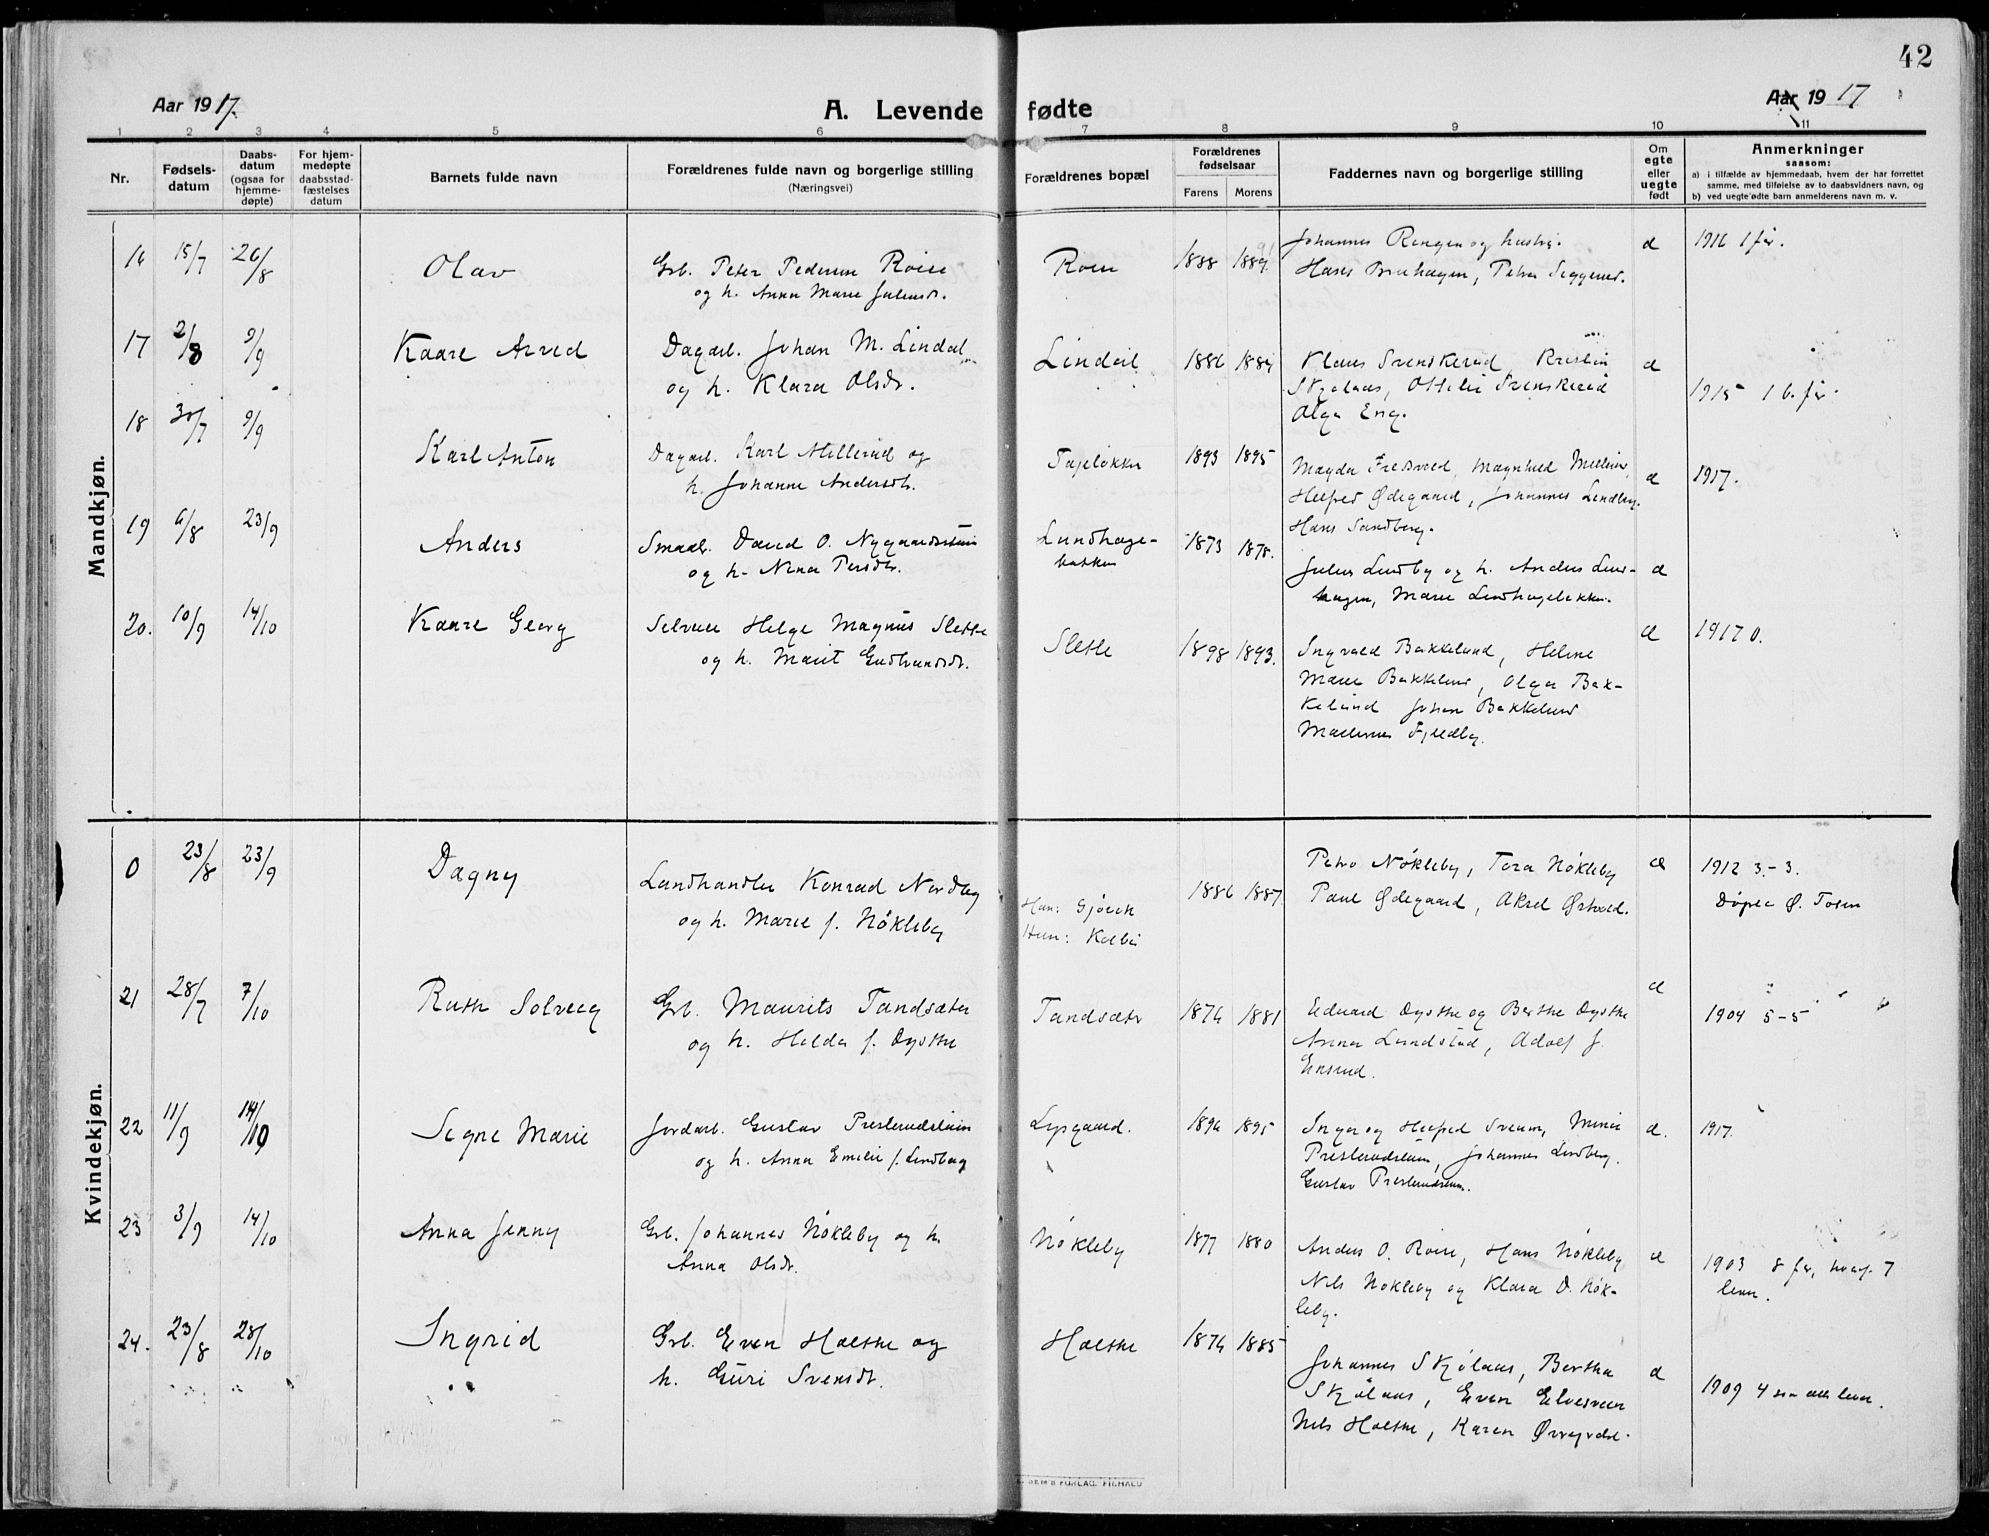 42
Aar 1917.
A. Levende fødte
Aar 1917
1 2 3 4 5 6 7 8 9 10 11
Nr.
Fødsels-
datum
Daabs-
datum
(ogsaa for
hjemme-
døpte)
For hjem-
medøpte
daabsstad-
fæstelses
datum
Barnets fulde navn
Forældrenes fulde navn og borgerlige stilling
(Næringsvei)
Forældrenes bopæl
Forældrenes
fødselsaar
Farens Morens
Faddernes navn og borgerlige stilling
Om
egte
eller
uegte
født
Anmerkninger
saasom:
a) i tilfælde av hjemmedaab, hvem der har forrettet
samme, med tilføielse av to daabsvidners navn, og
b) ved uegte fødte barn anmelderens navn m. v.
Mandkjøn.
16 15/7 26/8 Olav Grb. Peter Pedersen Roise
og h. Anna Marie
1888
Johannes Rengen og hustru.
Hans Petra
1916 1 før.
17 2/8 9/9 Kaare Arvid Dagarb. Johan M. Lindal
og h. Klara Olsdr.
1886
Klaus Svenskerud Kristin
Skjølaas, Ottilie Svenskerud
Olga Eng.
1915 1 b. før.
18 30/7 9/9 Karl Anton Dagarb. Karl og
h. Johanne Andersdtr.
1893 1895
Magda
Ødegaard, Johannes Lindberg.
Hans Sandberg.
1917.
19 6/8 23/9 Anders Smaabr. David O.
og h. Persdtr.
Lundhage-
bakken
1873 1878.
Julius Lundby og h. Anders Lund-
hagen, Marie
20. 10/9 14/10 Kaare Georg Helge Magnus Slette
og h. Marit Gudbrandsdtr.
Slette
1898 1893.
Ingvald Bakkelund, Helene
Marie Bakkelund, Olga Bak-
kelund Johan Bakkelund
Fjeldby.
1917 0.
Kvindekjøn.
0 23/8 23/9 Dagny Landhandler Konrad Nordby
og h. Marie f. Nøkleby
Han: Gjøvik
Hun: Kolbu
1886 1887
Petra Nøkleby, Tora Nøkleby
Paul Ødegaard, Aksel
1912 3-3.
Døpt i Ø. Toten
21 28/7 7/10 Ruth Solveig Grb. Maurits Tandsæter
og h. Helda f. Dysthe
Tandsætr
1876 1881
Eduard Dysthe og Berthe Dysthe
Anna Lundstad, Adolf J.
Ensrud.
1904 5-5
22 11/9 14/10 Signe Marie Jordarb. Gustav Presterudsteien
og h. Anna Emilie f. Lindberg
Lysgaard.
1895
Inga og Svenn,
Johannes Lindberg.
Gustav
1917.
23 3/9 14/10 Anna Jenny Grb. Johannes Nøkleby og h.
Anna Olsdr.
Nøkleby
1877 1880
Anders O. Roise, Hans Nøkleby
Nils Nøkleby og Klara O. Nøk-
leby.
1903 8 før, hvoraf 7
lever.
24. 23/8 28/10 Ingrid Grb. Even Holthe og
h. Guri Svensdtr.
Holthe
1876 1885
Johannes Skjølaas, Bertha
Skjølaas, Even Elvesveen
Nils Holthe, Karen
1909 4 som alle lever.